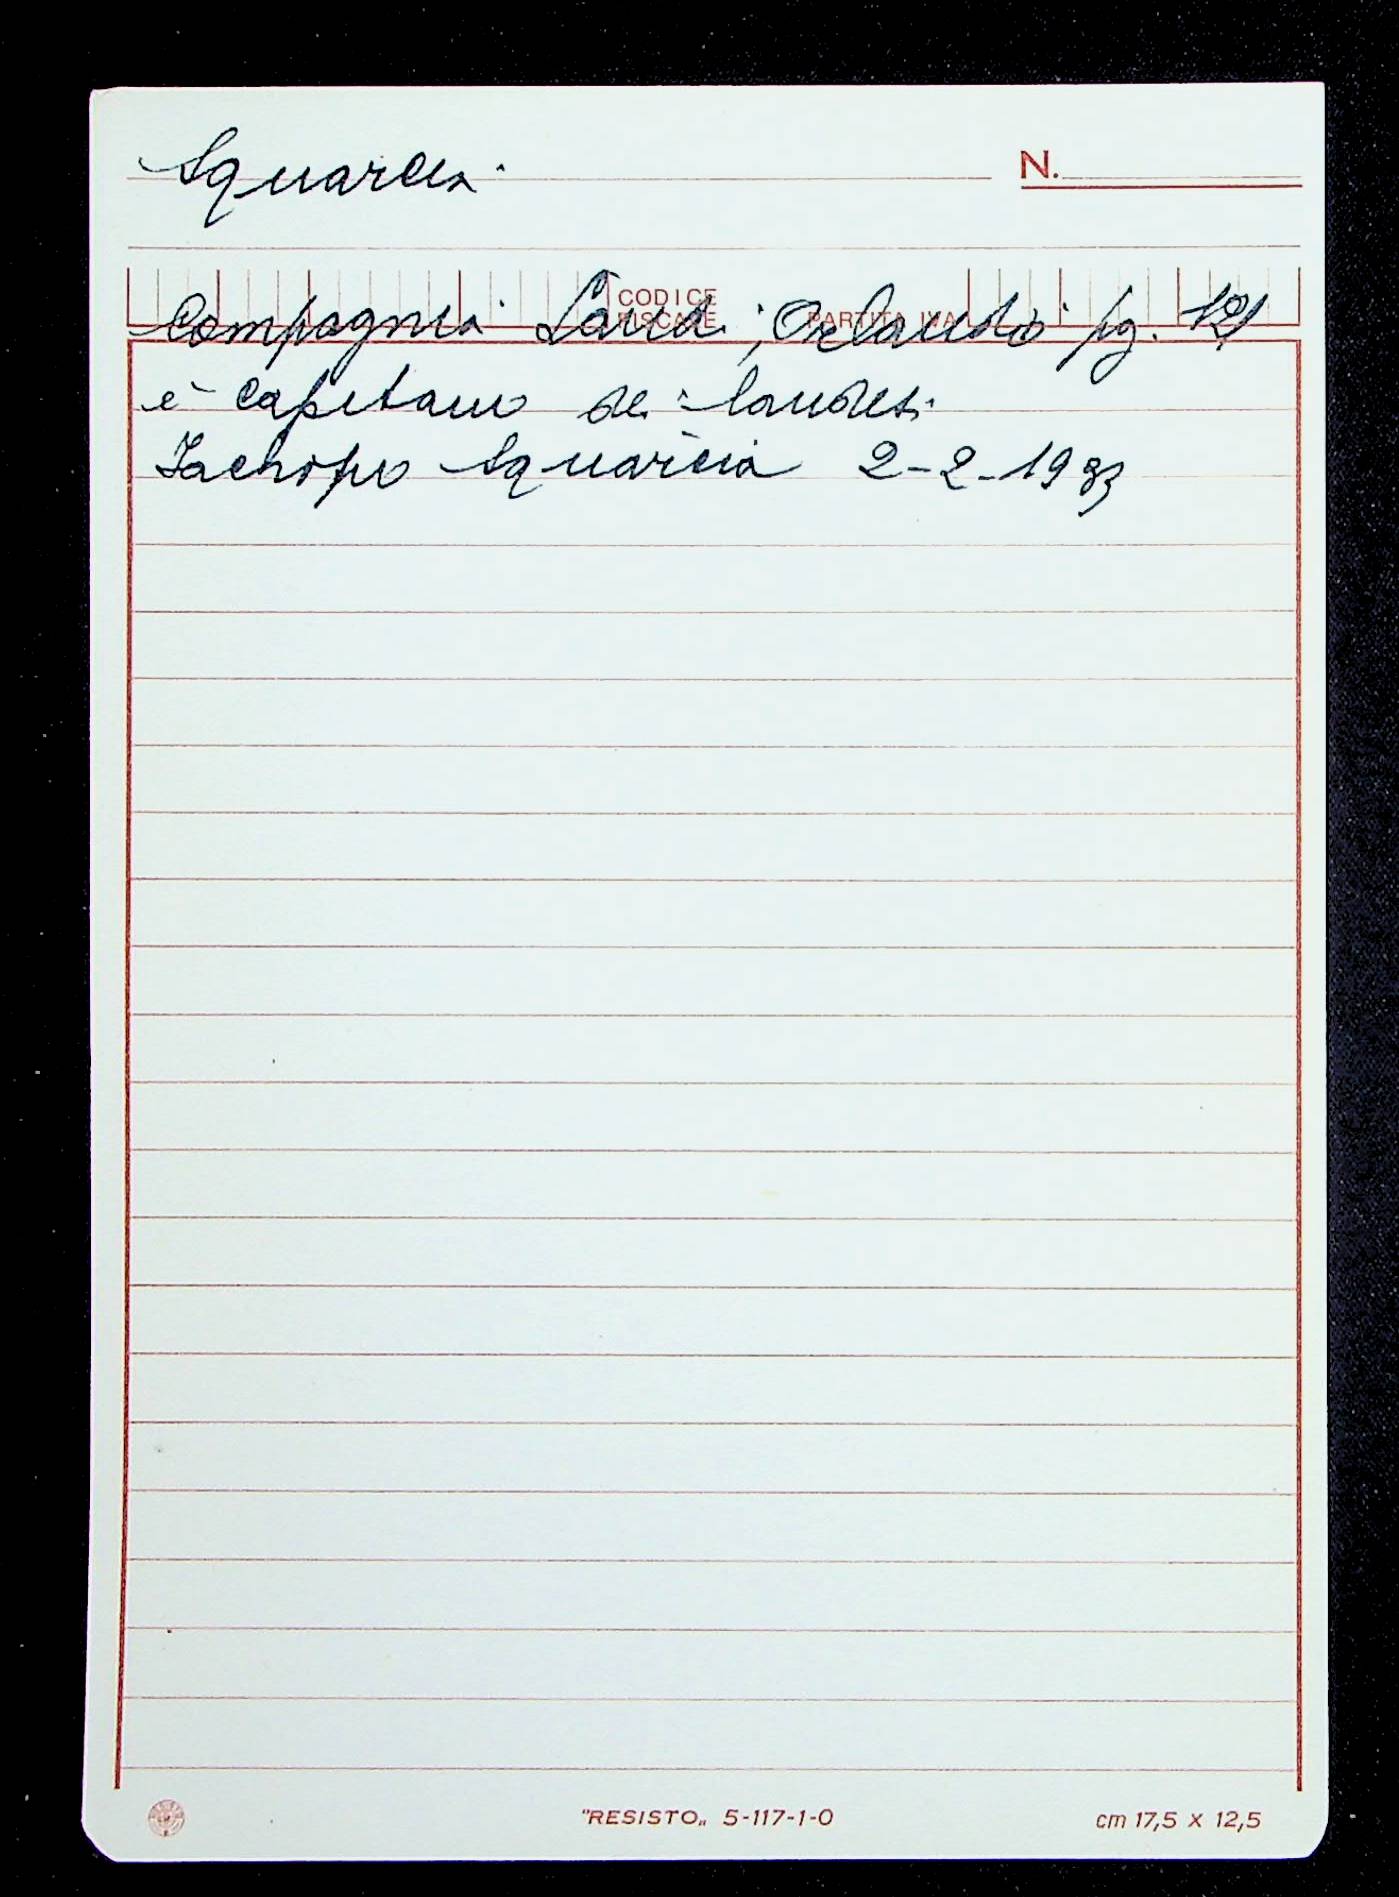 Squarcia
N.
CODICE FISCALE
PARTITA IVA
Compagnia Laudi, Orlando pg. 121
è capitano dei laudesi
Iachopo Squarcia 2-2-1983
"RESISTO„ 5-117-1-0
cm 17,5 x 12,5